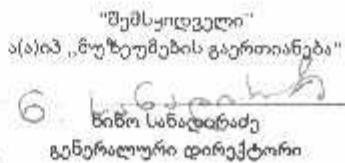 "შემსყიდველი"
ა(ა)იპ „მუზეუმების გაერთიანება"
ნინო სანადირაძე
გენერალური დირექტორი